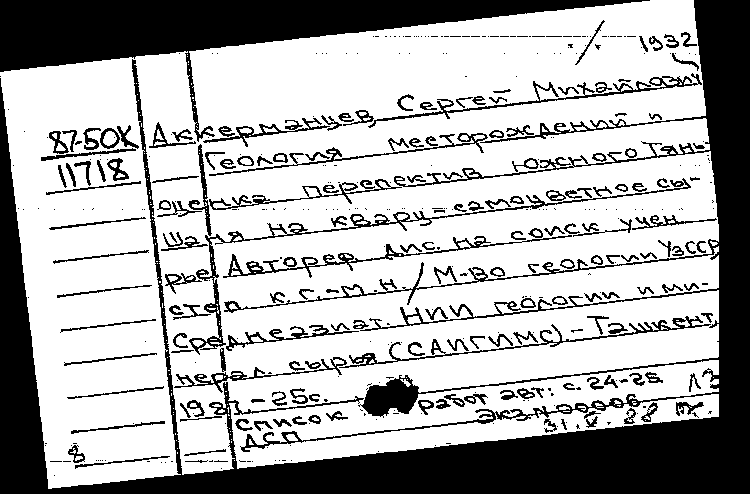 1932
87-50X Аккерманцев, Сергей Михайлович
11718 Геология месторождений и
оценка перспектив Южного Тянь-
Шаня на кварц-самоцветное сы-
рье. Автореф. дис. на соиск. учен.
степ. к.г.-м.н. / М-во геологии УзССР
Среднеазиат. НИИ геологии и ми-
нерал. сырья (САИГИМС). - Ташкент,
1987. - 25с.
Список работ авт: с. 24-25
ДСП Экз.N 00006
31.V.88
8